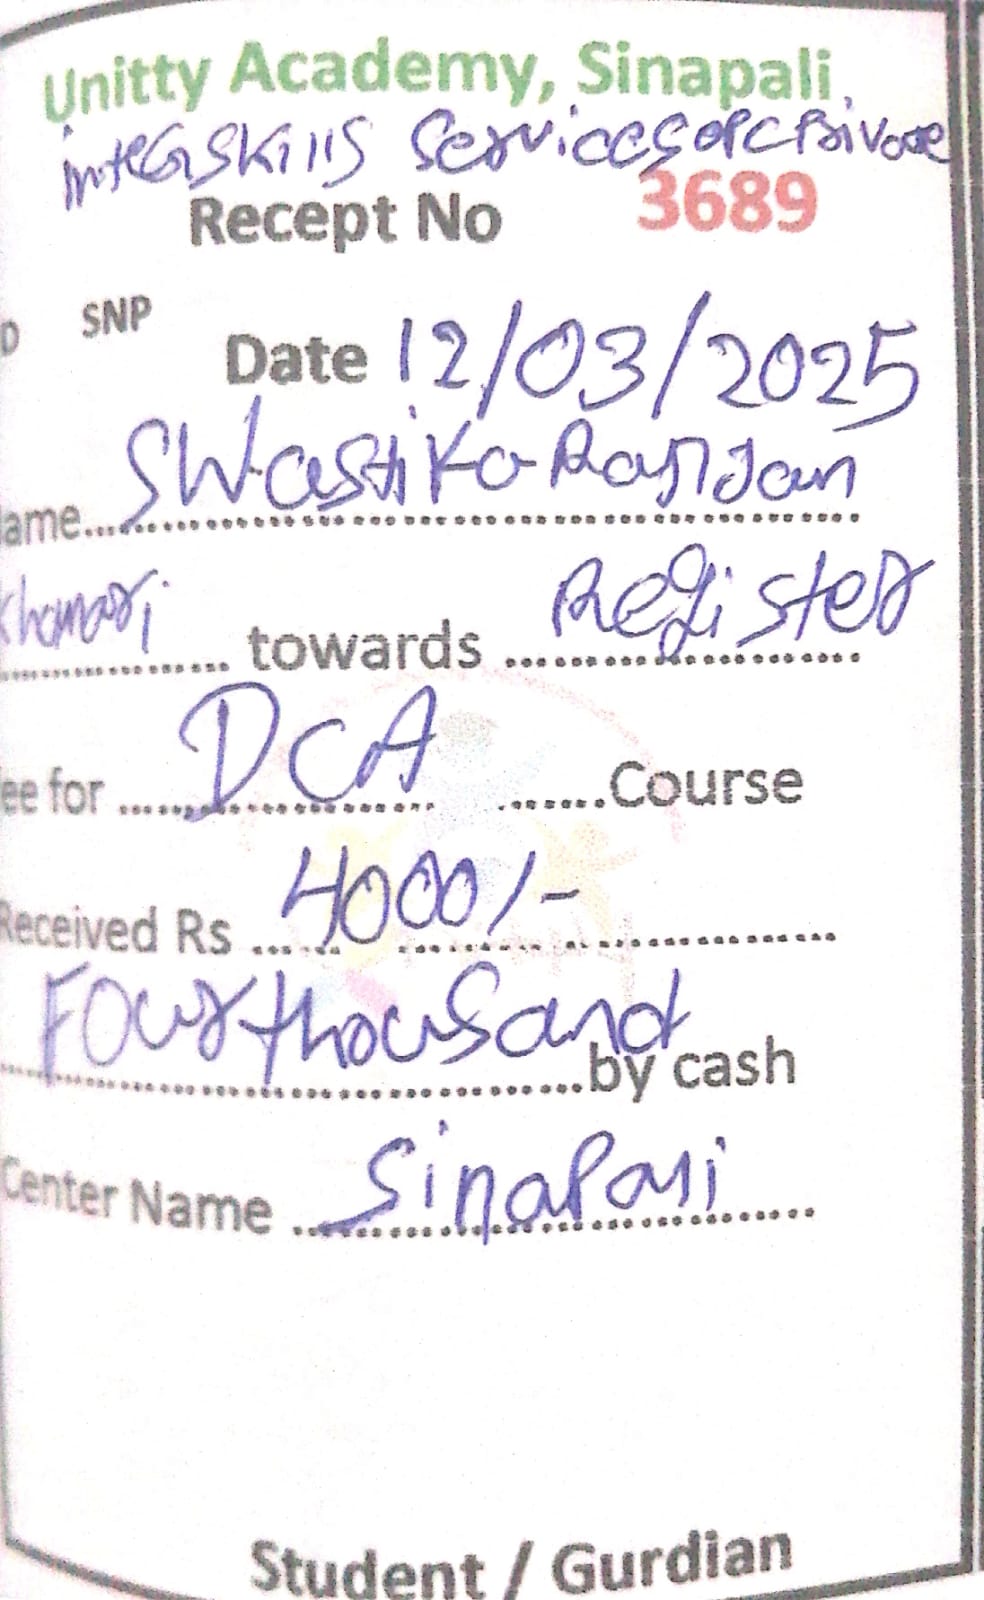 Unitty Academy, Sinapali
inteGrSKills Services OPC Private
Recept No 3689
D SNP
Date 12/03/2025
ame.....SWastika Ranjan
Khamari ..... towards ..... Register
ee for ..... DCA ..... Course
Received Rs ..... 4000/- .....
Four thousand .....by cash
Center Name ..... Sinapali
Student / Gurdian